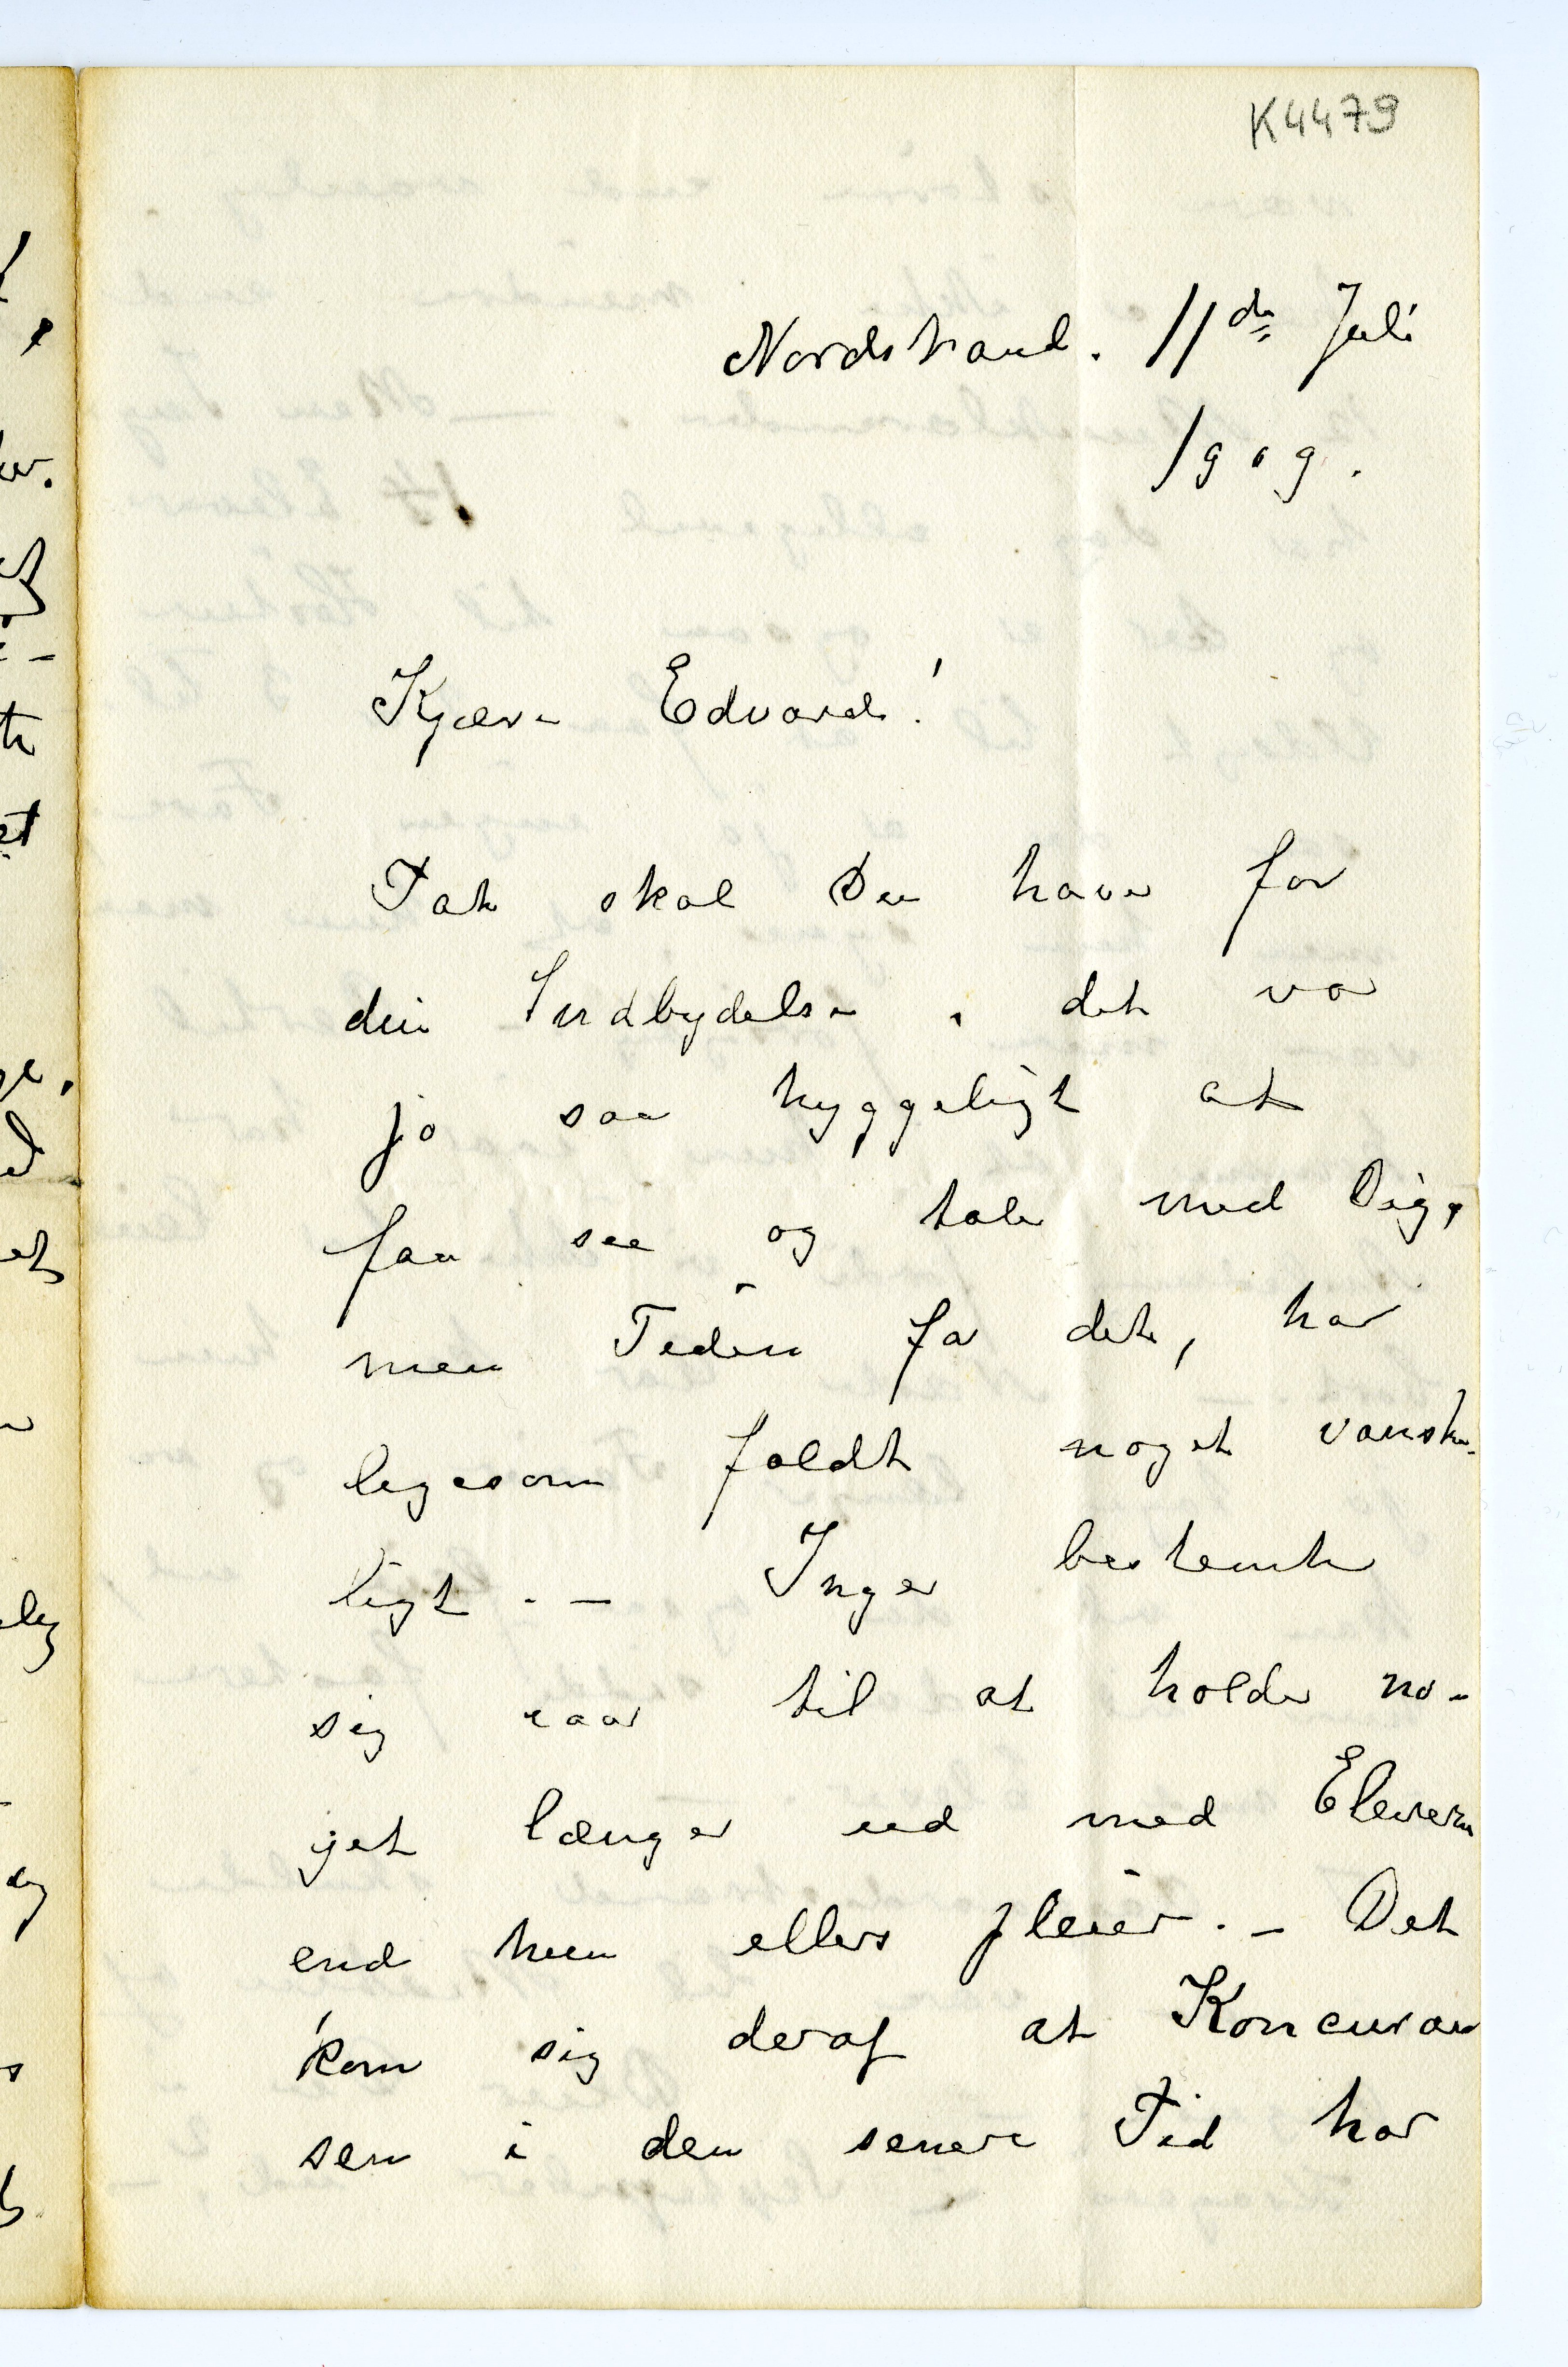 K4479
Nordstrand. 11te Juli
1909.
Kjære Edvard!
Tak skal Du have for
din Indbydelse, det var
jo saa hyggeligt at
faa see og tale med Dig,
men Tiden for det, har
ligesom faldt noget vanske-
ligt. – Inger bestemte
sig iaar til at holde no-
get længer ud med Eleverne
end hun ellers pleier. – Det
kom sig deraf at Koncuran
sen i den senere Tid har